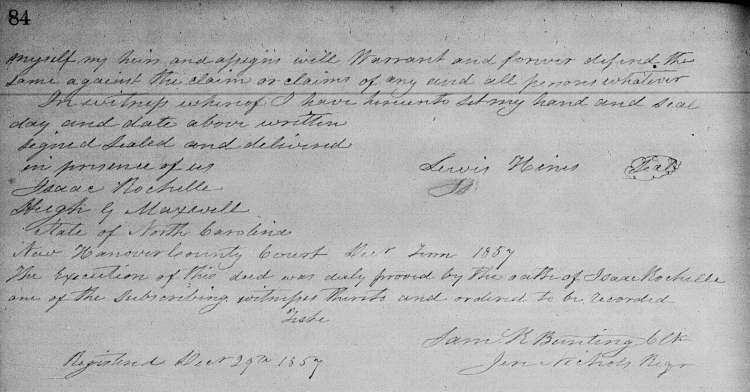 84
myself my heirs and assigns will Warrant and forever defend the
same against the claim or claims of any and all persons whatever
In witness whereof I have hereunto set my hand and seal
day and date above written
Signed Sealed and delivered
in presence of us Lewis Hines Seal
Isaac Rochelle
Hugh G Maxwell
State of North Carolina
New Hanover County Court Decr Term 1857
The Execution of this deed was duly proved by the oath of Isaac Rochelle
one of the Subscribing witnesses thereto and ordered to be recorded
Teste
Sam R Bunting Clk
Registered Decr 29th 1857 Nichols Regr